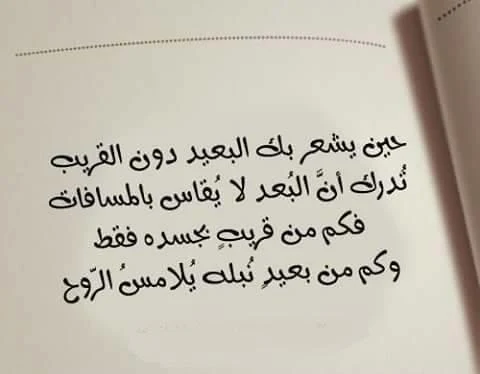 حين يشعر بك البعيد دون القريب
تُدرك أنَّ البُعد لا يُقاس بالمسافات
فكم من قريبٍ بجسده فقط
وكم من بعيدٍ نُبله يُلامسُ الرّوح